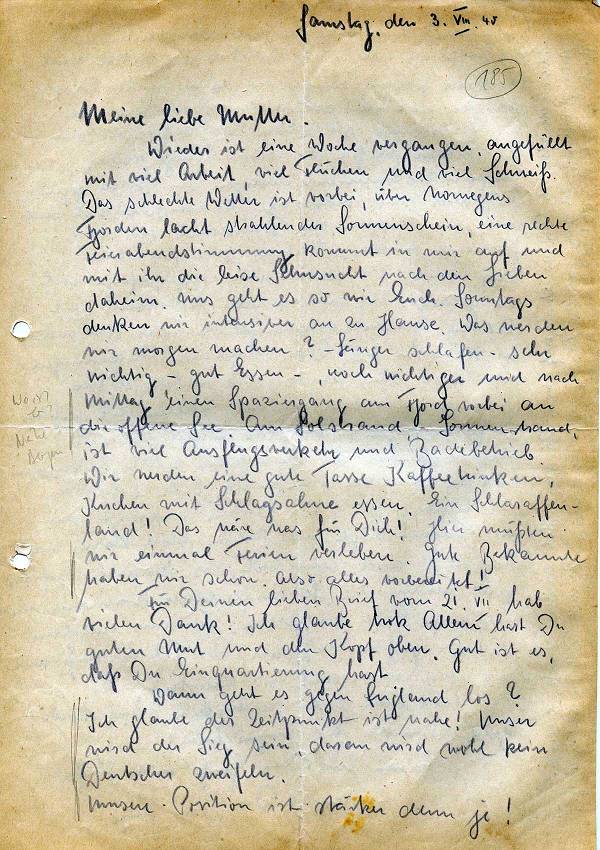 Samstag, den 3. VIII. 40
185
Meine liebe Mutter.
Wieder ist eine Woche vergangen, angefüllt
mit viel Arbeit, viel Flüchen und viel Schweiß.
Das schlechte Wetter ist vorbei, über Norwegens
Fjorden lacht strahlender Sonnenschein, eine rechte
Feierabendstimmung kommt in mir auf und
mit ihr die leise Sehnsucht nach den Lieben
daheim. Uns geht es so wie Euch. Sonntags
denken wir intensiver an zu Hause. Was werden
wir morgen machen? - Länger schlafen - sehr
wichtig - gut Essen -, noch wichtiger und nach
Mittag einen Spaziergang am Fjord vorbei an
die offene See. Am Solstrand Sonnenstrand,
ist viel Ausflugsverkehr und Badebetrieb
Wir werden eine gute Tasse Kaffee trinken,
Kuchen mit Schlagsahne essen. Ein Schlaraffen-
land! Das wäre was für Dich! Hier müßten
wir einmal Ferien verleben. Gute Bekannte
haben wir schon. Also alles vorbereitet!
Für Deinen lieben Brief vom 21. VII hab
vielen Dank! Ich glaube trotz Allem hast Du
guten Mut und den Kopf oben. Gut ist es,
daß Du Einquartierung hast
Wann geht es gegen England los?
Ich glaube der Zeitpunkt ist nahe! Unser
wird der Sieg sein, daran wird wohl kein
Deutscher zweifeln.
Unsere Position ist stärker denn je!
Nähe
Bergen